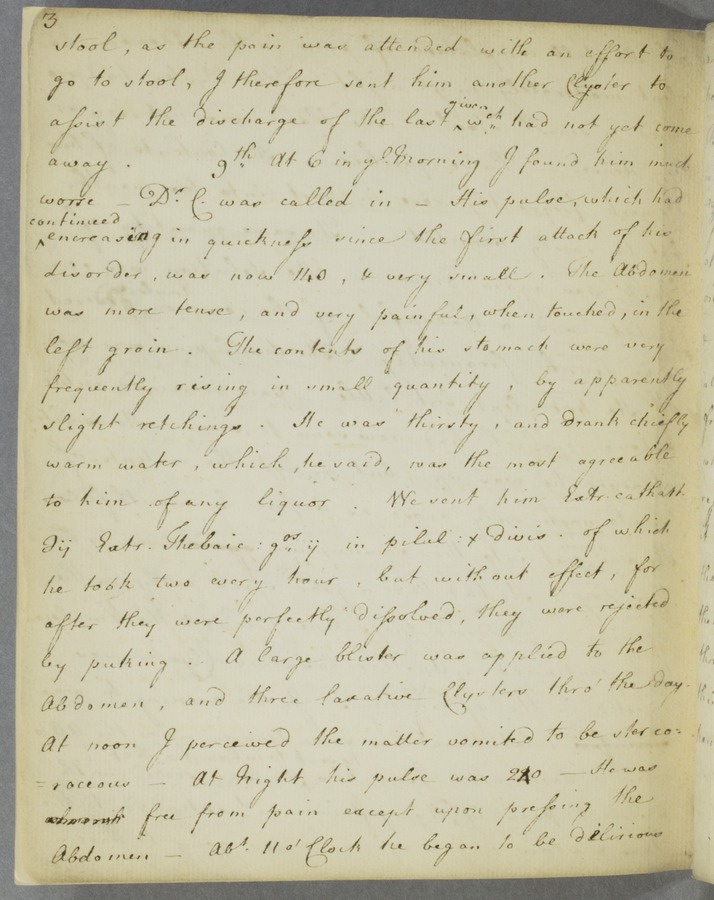 3
stool, as the pain was attended with an effort to
go to stool, I therefore sent him another Clyster to
assist the discharge of the last given wch had not yet come
away. 9th At 6 in ye Morning I found him much
worse – Dr C. was called in – His pulse, which had
continued
encreasing in quickness since the first attack of his
disorder, was now 140, & very small. The Abdomen
was more tense, and very painful, when touched, in the
left groin. The contents of his stomach were very
frequently rising in small quantity, by apparently
slight retchings. He was thirsty, and drank chiefly
warm water, which, he said, was the most agreeable
to him of any liquor. We sent him Extr. cathart.
Ʒij Extr. Thebaic: gros ij in pilul: x divis. of which
he took two every hour, but without effect, for
after they were perfectly dissolved, they were rejected
by puking. A large blister was applied to the
Abdomen, and three laxative Clysters thro' the day.
At noon I perceived the matter vomited to be sterco=
=raceous – At Night his pulse was – He was
free from pain except upon pressing the
Abdomen – Abt. 11 o'Clock he began to be delirious